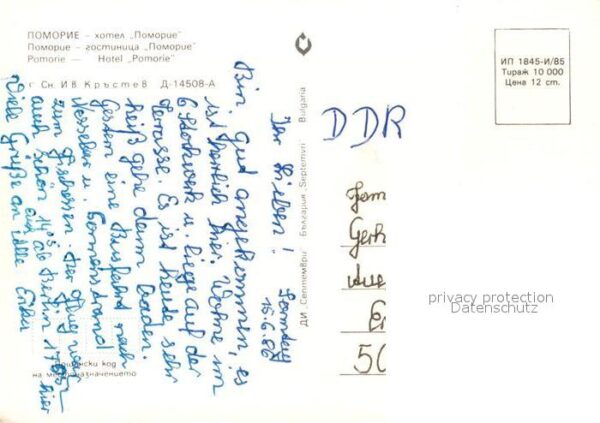 ПОМОРИЕ – хотел „Поморие"
Поморие – гостиница „Поморие"
Pomorie — Hotel „Pomorie"
Сн. Ив. Кръстев Д-14508-А
ИП 1845-И/85
Тираж 10 000
Цена 12 ст.
ДИ „Септември" България „Septemvri" Bulgaria
Ihr Lieben! Sonntag
15.6.86
Bin gut angekommen, es
ist herrlich hier. Wohne im
6. Stockwerk u. liege auf der
Terrasse. Es ist heute sehr
heiß gehe dann baden.
Gestern eine Busfahrt nach
Nessebar u. Sonnenstrand
zum Fischessen. Der Flug war
auch schön 14⁰⁵ ab Berlin 17⁰⁵ hier
Viele Grüße an alle
DDR
Fam
Gerh
Aue
50
код
на местоназначението
privacy protection
Datenschutz